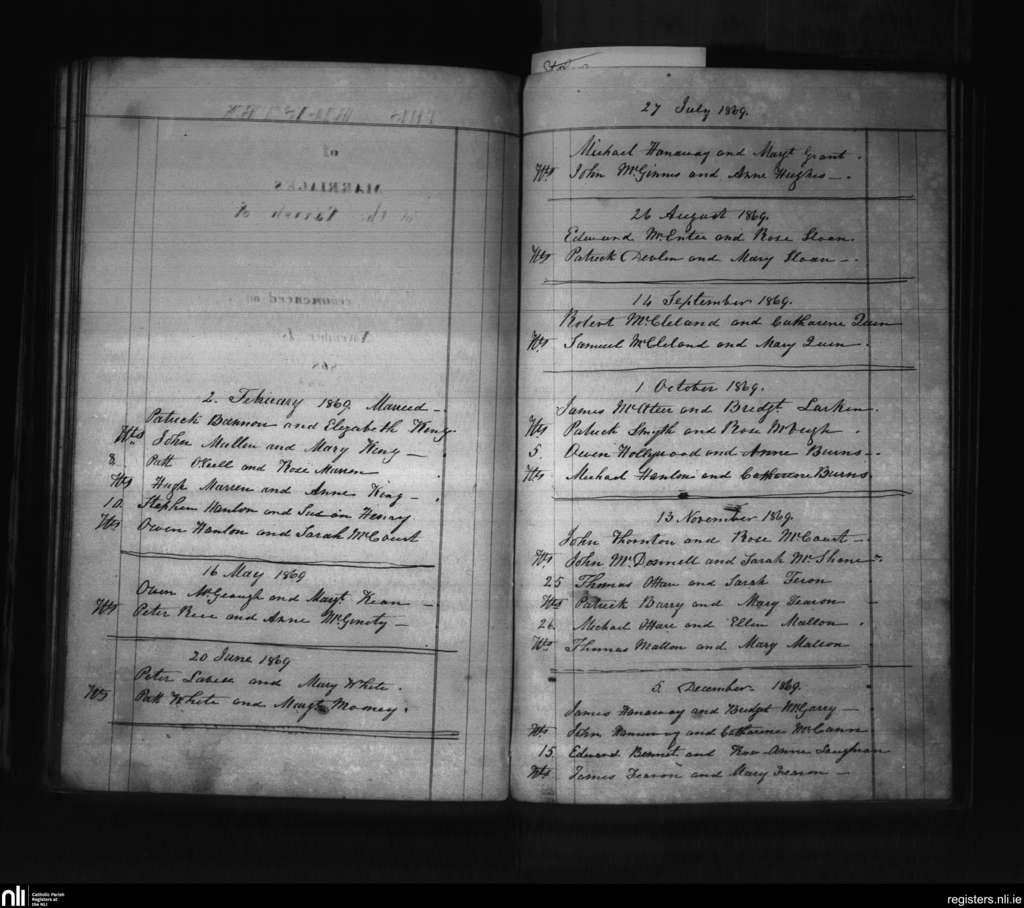 of
MARRIAGES
in the Parish of
commenced on
2. February 1869. Married -
Patrick Bannon and Elizabeth King.
Wts John Mullen and Mary King -
8 Patt O'Neill and Rose Murren
Wts Hugh Murren and Anne King -
10. Stephen Hanlon and Susan Henry
Wts Owen Hanlon and Sarah McCourt
16 May 1869
Owen McGeough and Margt. Kean -
Wts Peter Rice and Anne McGinity -
20 June 1869
Peter and Mary White.
Wts Patt White and Margt Mooney.
27 July 1869.
Michael Hanaway and Margt Grant.
Wts John McGinnis and Anne Hughes -.
26 August 1869.
Edward McEntee and Rose Sloan.
Wts Patrick Devlin and Mary Sloan -.
14 September 1869.
Robert McCleland and Catharine Quin
Wts Samuel McCleland and Mary Quin.
1 October 1869.
James McAteer and Bridgt. Larkin.
Wts Patrick Smyth and Rose McVeigh.
5. Owen Hollywood and Anne Burns -.
Wts Michael Hanlon and Catherine Burns.
13 November 1869.
John Thornton and Rose McCourt -.
Wts John McDonnell and Sarah McShane -.
25 Thomas OHare and Sarah Feron
Wts Patrick Barry and Mary Fearon -
26. Michael OHare and Ellen Mallon.
Wts Thomas Mallon and Mary Mallon
5 December 1869.
James Hanaway and Bridget McGarry -
Wts John Hannaway and Catharine McCann.
15 Edward Bennet and Anne Loughran
Wts James Fearon and Mary Fearon -
nli Catholic Parish Registers at the NLI
registers.nli.ie